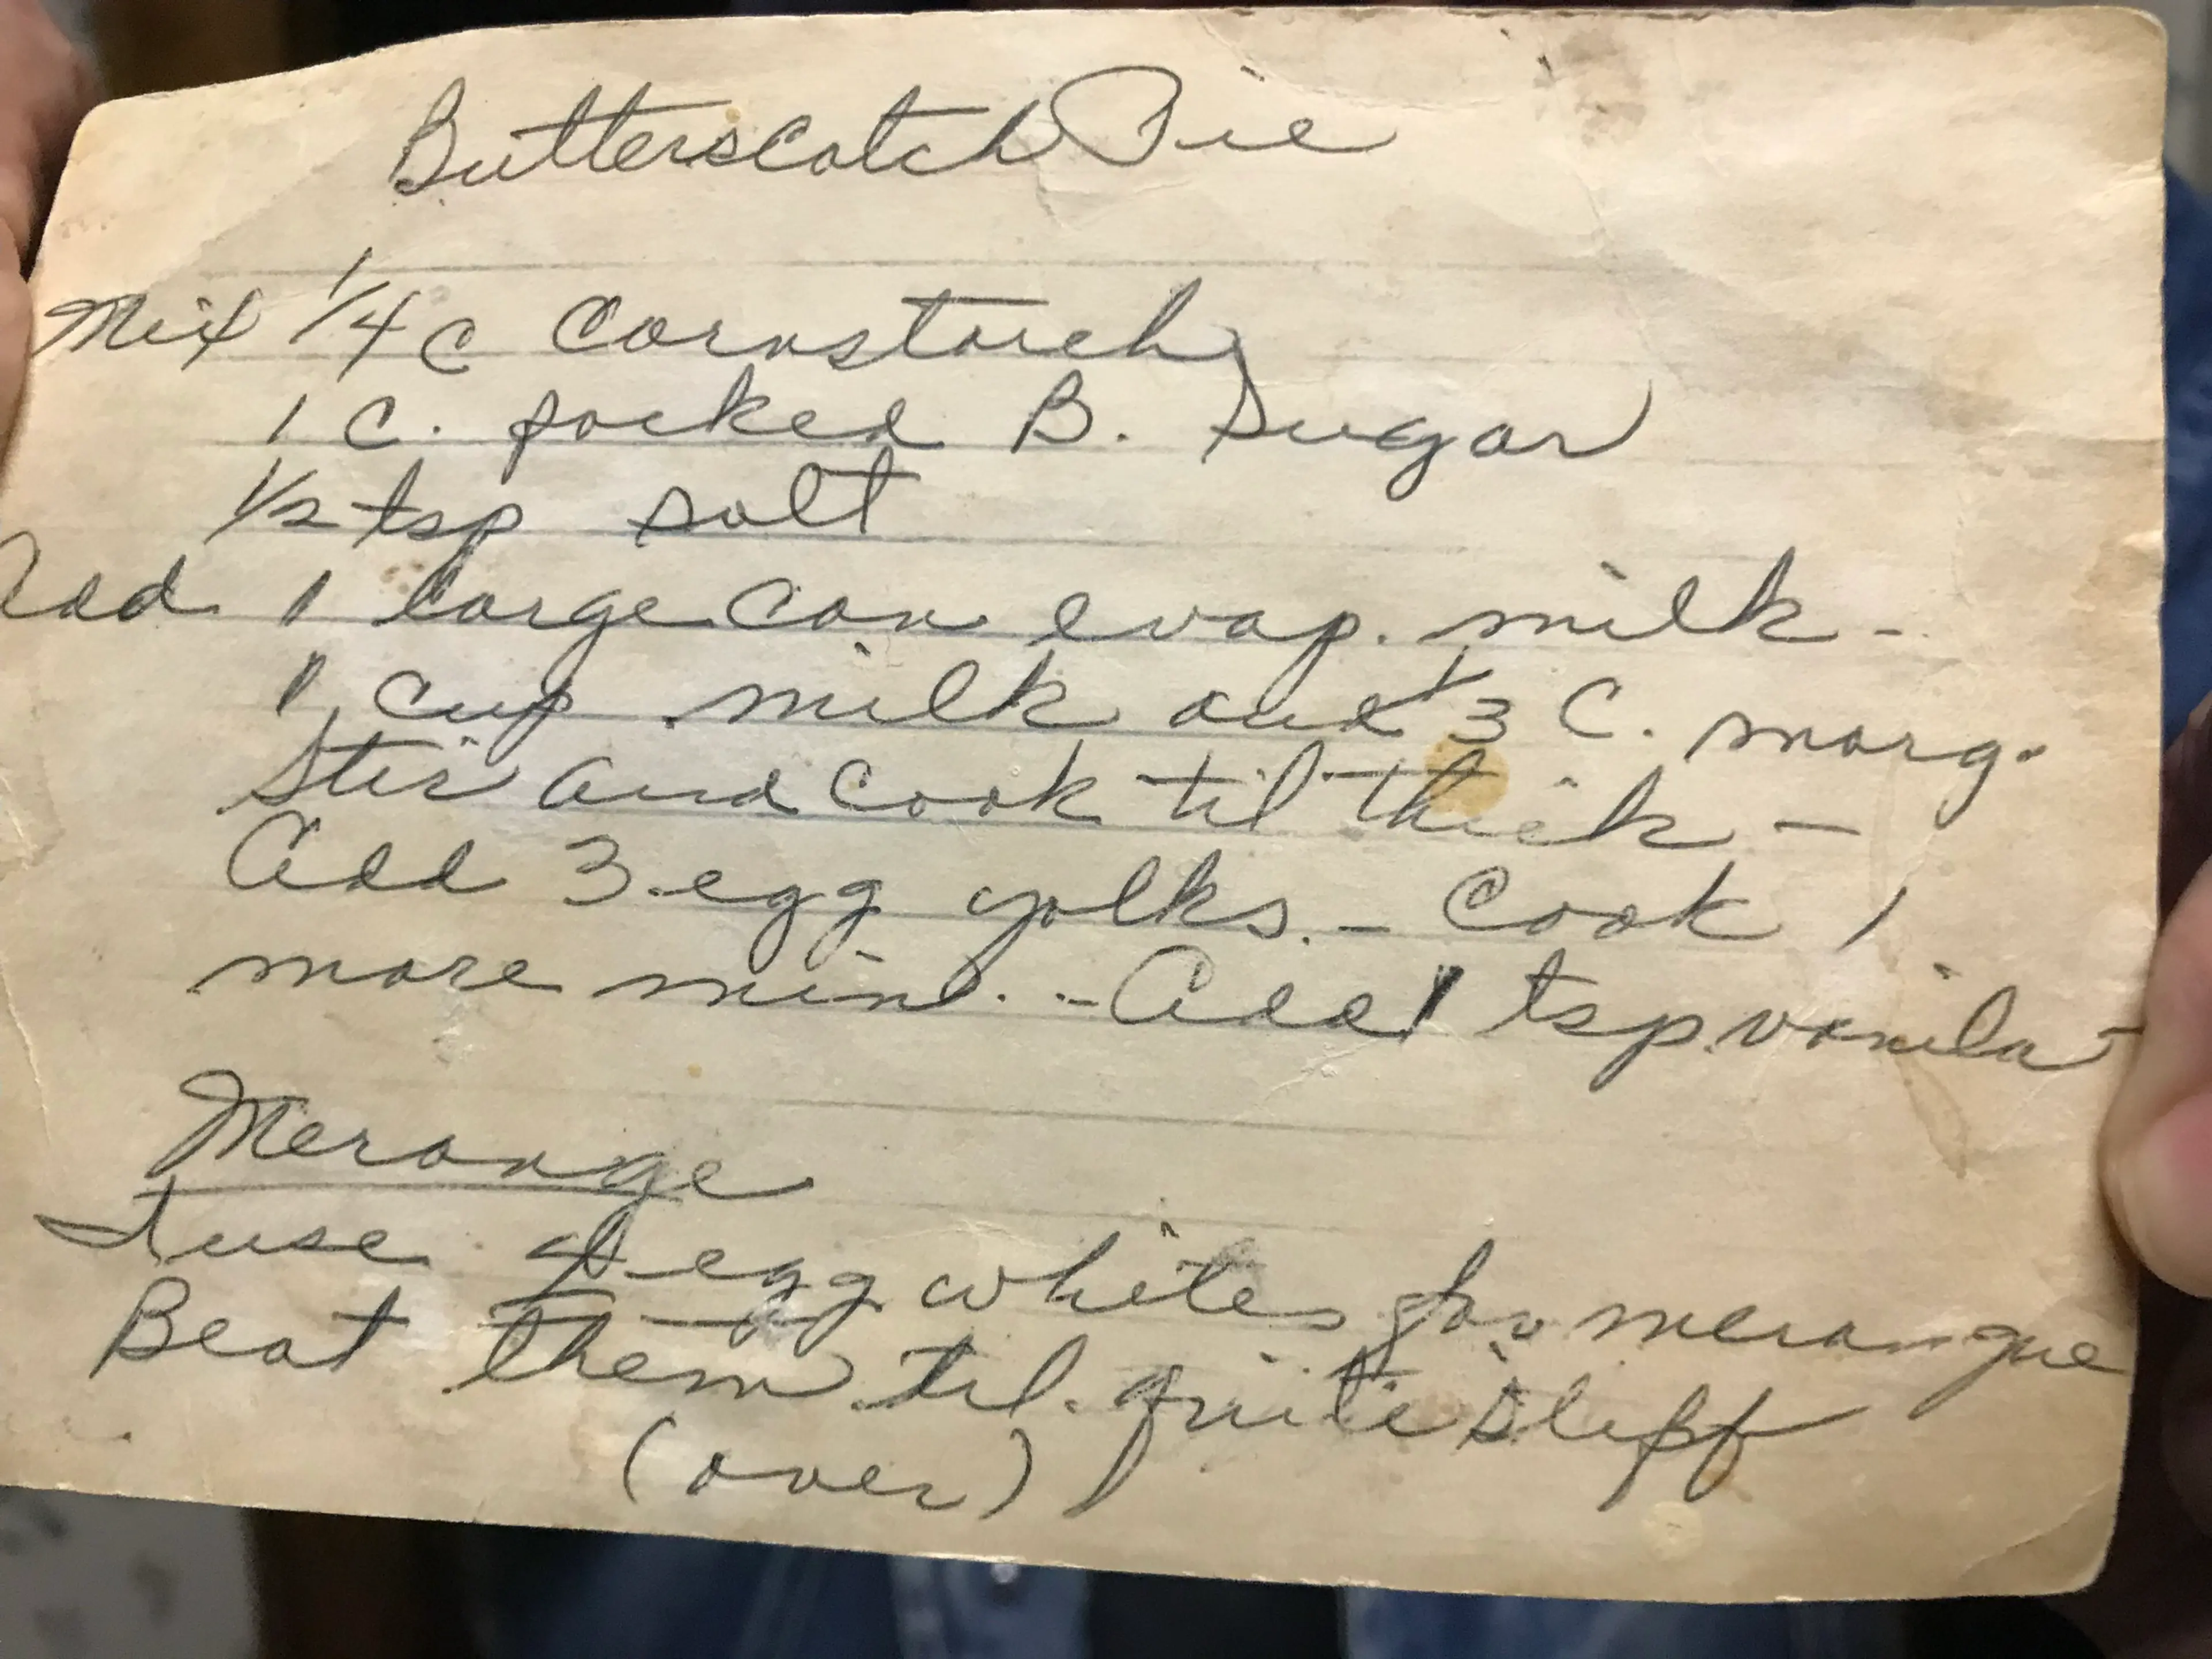 Butterscotch Pie
Mix 1/4 C Cornstarch
1 C. packed B. Sugar
1/2 tsp salt
Add 1 large can evap. milk -
1 cup milk and 1/3 C. marg.
Stir and cook til thick -
Add 3 egg yolks. - Cook 1
more min. - Add 1 tsp vanila -
Merange
I use 4 egg whites for merangue
Beat them til quite stiff
(over)